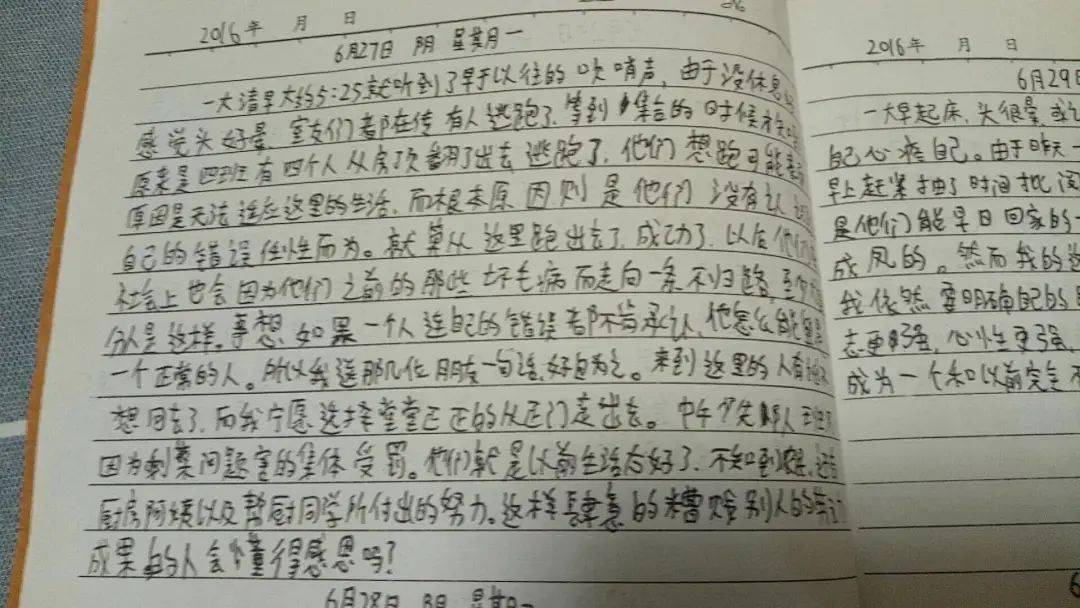 2016年 月 日
6月27日 阴 星期一
一大清早大约5:25就听到了早于以往的吹哨声，由于没休息
感觉头好晕，室友们都在传有人逃跑了，等到集合的时候才知
原来是四班有四个人从房顶翻了出去逃跑了，他们想跑可能
原因是无法适应这里的生活，而根本原因则是他们没有认
自己的错误任性而为。就算从这里跑出去了，成功了，以后他们
社会上也会因为他们之前的那些坏毛病而走向一条不归路，至少
是这样。事想如果一个人连自己的错误都不肯承认，他怎么能
一个正常的人。所以我送那几位朋友一句话，好自为之。来到这里的人有
想回去了，而我宁愿选择堂堂正正的从正门走出去。中午
因为剩菜问题室的集体受罚。他们就是以前生活太好了，不知
厨房阿姨以及帮厨同学所付出的努力。这样肆意的糟赊别人的劳
成果的人会懂得感恩吗？
6月28日 阴 星期二
2016年 月 日
6月29日
一大早起床，头很晕，
自己心疼自己。由于昨天
早上赶紧抽了时间批阅
是他们能早日回家的
成凤的。然而我的
我依然要明确自己的
志更坚强，心性更强，
成为一个和以前完全不